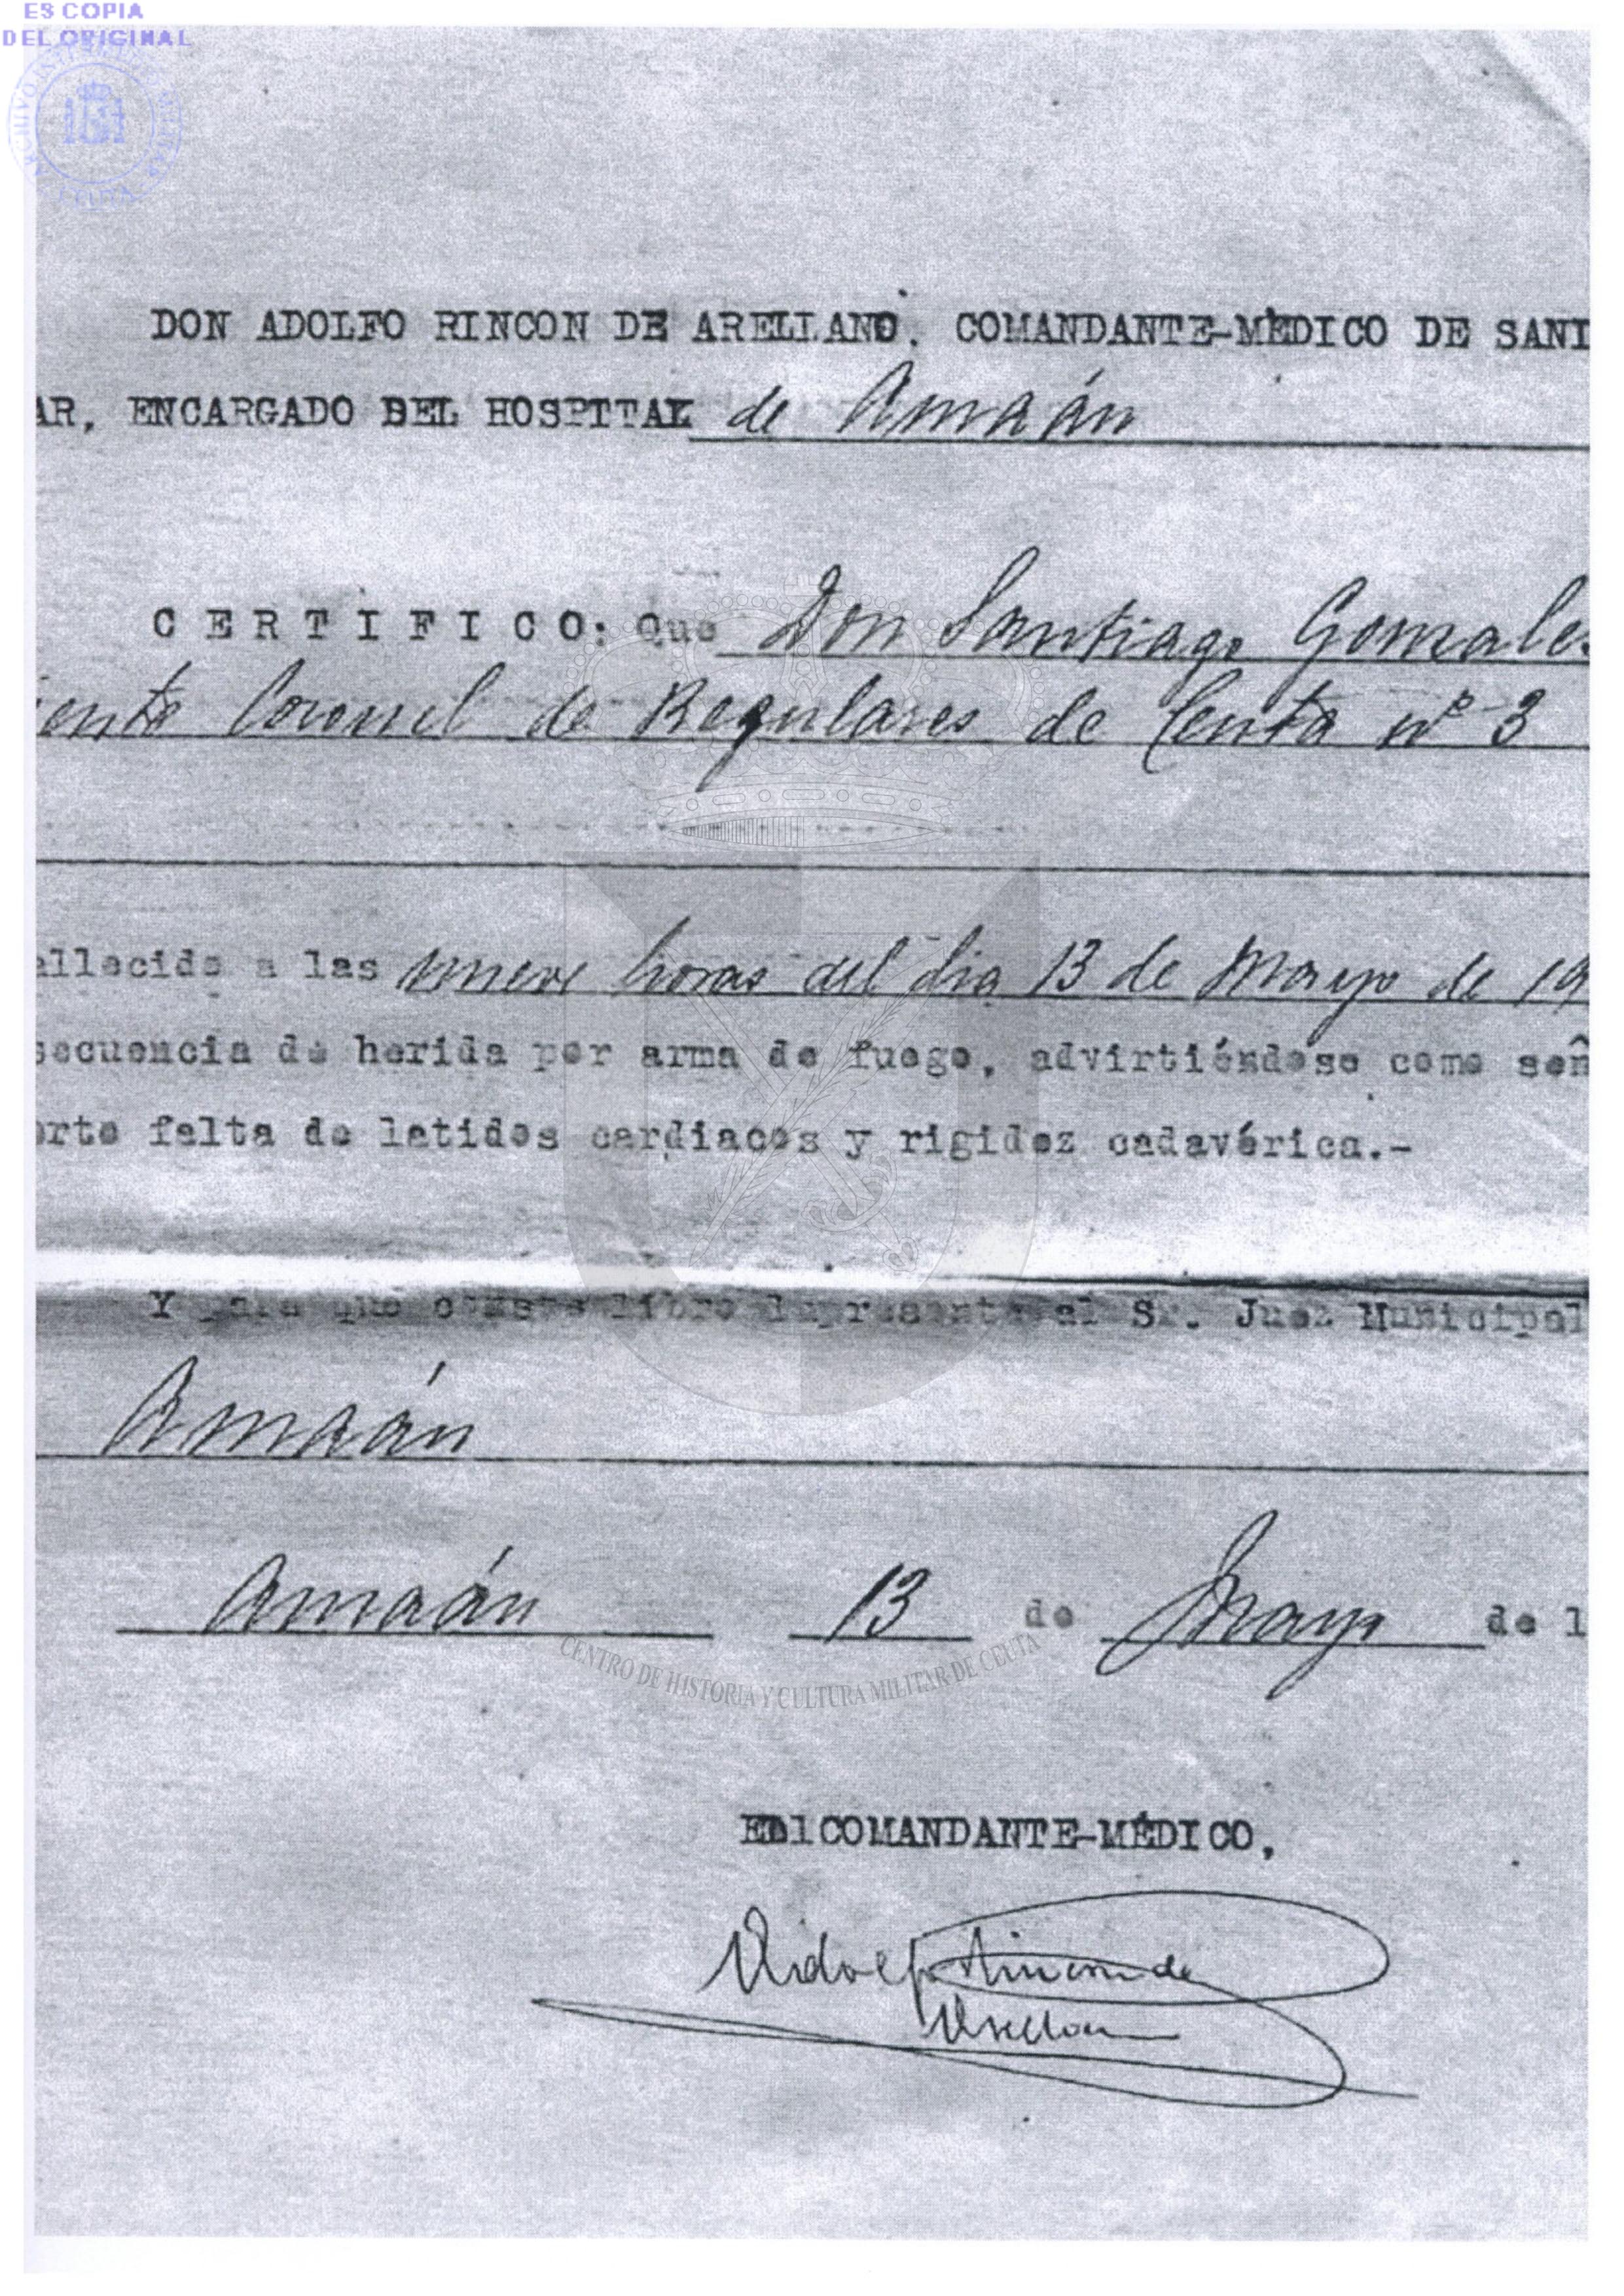 ES COPIA
DEL ORIGINAL
CEUTA
DON ADOLFO RINCON DE ARELLANO, COMANDANTE-MÉDICO DE SANI
AR, ENCARGADO DEL HOSPITAL de Amaán
CERTIFICO: Que Don Santiago Gonzale
iente Coronel de Regulares de Ceuta nº 3
allecido a las nueve horas del dia 13 de Mayo de 19
secuencia de herida por arma de fuego, advirtiéndose como señ
erte falta de latidos cardiacos y rigidez cadavérica.-
Y para que conste libro la presente al Sr. Juez Municipal
Amaán
Amaán 13 de Mayo de 1
CENTRO DE HISTORIA Y CULTURA MILITAR DE CEUTA
EL COMANDANTE-MÉDICO,
Adolfo Rincon de
Arellano